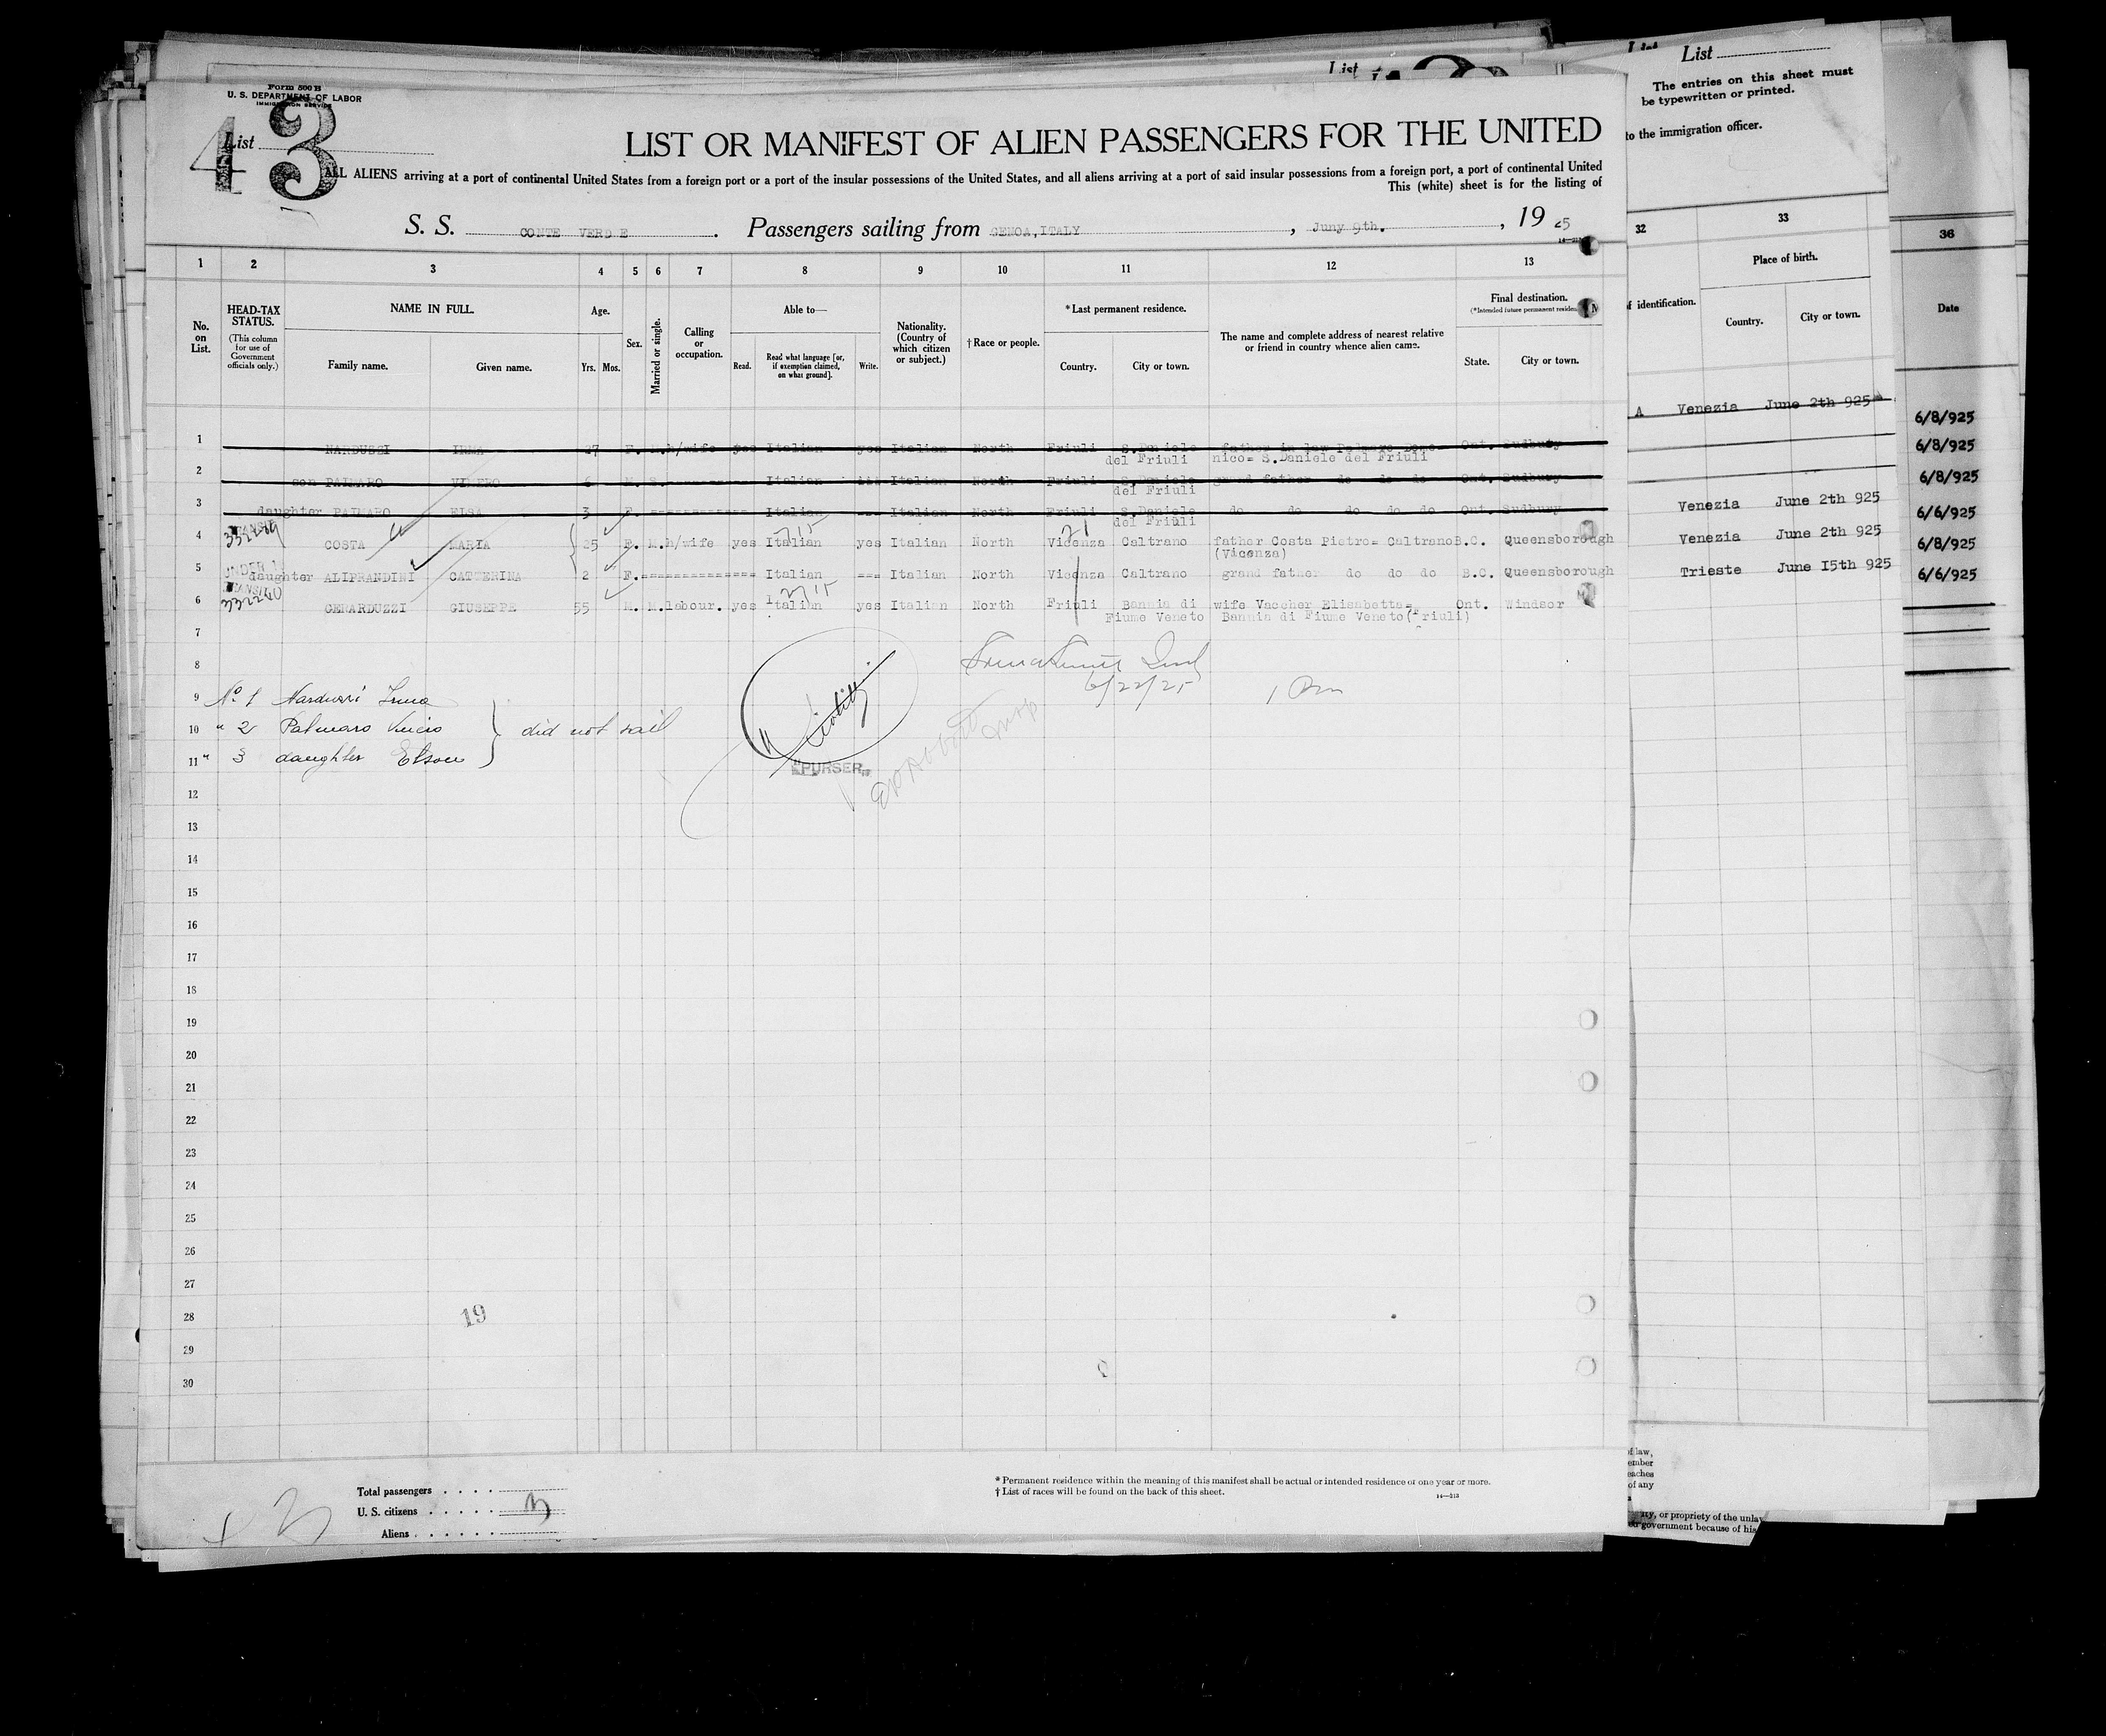 Form 500 B
U. S. DEPARTMENT OF LABOR
IMMIGRATION SERVICE
List
43
LIST OR MANIFEST OF ALIEN PASSENGERS FOR THE UNITED
ALL ALIENS arriving at a port of continental United States from a foreign port or a port of the insular possessions of the United States, and all aliens arriving at a port of said insular possessions from a foreign port, a port of continental United
This (white) sheet is for the listing of
S. S. CONTE VERDE. Passengers sailing from GENOA, ITALY, Juny 9th., 19 25
1 2 3 4 5 6 7 8 9 10 11 12 13
No. on List.
HEAD-TAX STATUS.
(This column for use of Government officials only.)
NAME IN FULL.
Family name. Given name.
Age.
Yrs. Mos.
Sex.
Married or single.
Calling or occupation.
Able to—
Read. Read what language [or, if exemption claimed, on what ground]. Write.
Nationality. (Country of which citizen or subject.)
† Race or people.
* Last permanent residence.
Country. City or town.
The name and complete address of nearest relative or friend in country whence alien came.
Final destination.
(*Intended future permanent residen
State. City or town.
1 NARDUSSI IRMA 27 F. M. h/wife yes Italian yes Italian North Friuli S.Daniele father in law Palmaro Dome- Ont. Sudbury
del Friuli nico= S.Daniele del Friuli
2 son PALMARO 6 M. S. Italian Italian North Friuli S.Daniele grand father do do do Ont. Sudbury
del Friuli
3 daughter PALMARO ELSA 3 F. Italian --- Italian North Friuli S.Daniele do do do do do Ont. Sudbury
del Friuli
4 COSTA MARIA 25 F. M. h/wife yes Italian yes Italian North Vicenza Caltrano father Costa Pietro= Caltrano B.C. Queensborough
(Vicenza)
5 daughter ALIPRANDINI CATTERINA 2 F. Italian --- Italian North Vicenza Caltrano grand father do do do B.C. Queensborough
6 332240 GERARDUZZI GIUSEPPE 55 M. M. labour. yes Italian yes Italian North Friuli Bannia di wife Vaccher Elisabetta= Ont. Windsor
Fiume Veneto Bannia di Fiume Veneto(Friuli)
7
8
6/22/25
9 No 1 Narduzzi Irma
10 " 2 Palmaro did not sail
11 " 3 daughter
"PURSER"
12
13
14
15
16
17
18
19
20
21
22
23
24
25
26
27
28 19
29
30
Total passengers
U. S. citizens
Aliens
* Permanent residence within the meaning of this manifest shall be actual or intended residence of one year or more.
† List of races will be found on the back of this sheet.
14—213
List
List
The entries on this sheet must
be typewritten or printed.
to the immigration officer.
32 33 36
of identification.
Place of birth.
Country. City or town.
Date
A Venezia June 2th 925
Venezia June 2th 925
Venezia June 2th 925
Trieste June I5th 925
6/8/925
6/8/925
6/8/925
6/6/925
6/8/925
6/6/925
of law,
ember
eaches
of any
ity, or propriety of the unlaw
government because of his